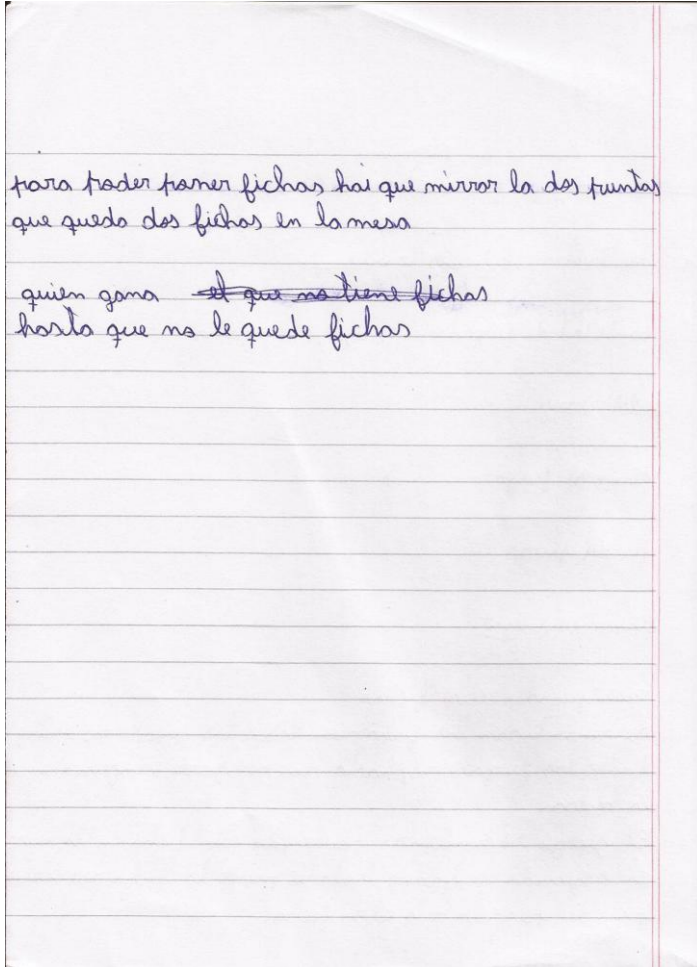 para poder poner fichas hai que mirrar la dos puntas
que queda dos fichas en la mesa
quien gana el que no tiene fichas
hasta que no le quede fichas